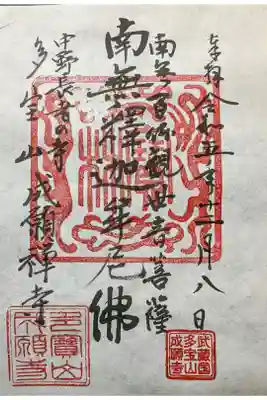 奉拝 令和五年十二月八日
南無百体観世音菩薩
南無釋迦牟尼佛
中野長者の寺
多宝山 成願禅寺
武蔵国
多宝山
成願寺
多寶山
成願寺